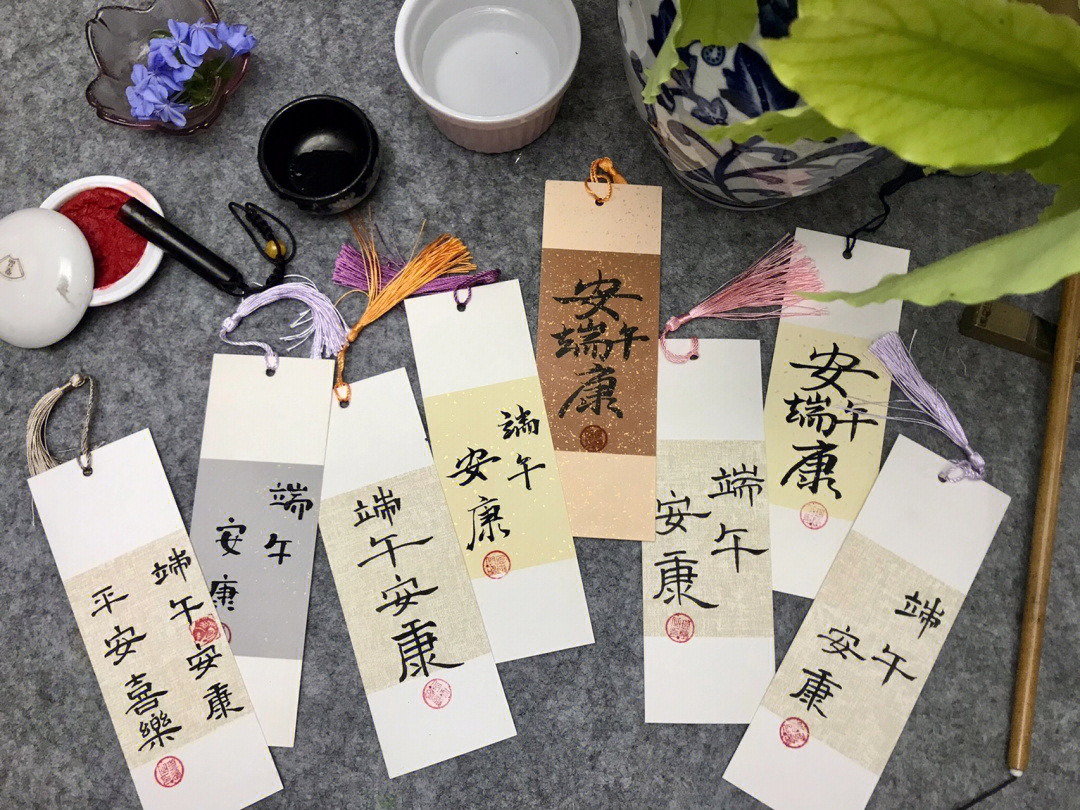 端午安康
平安喜樂
端午
安康
端午安康
端午
安康
安
端午
康
端午
安康
安
端午
康
端午
安康